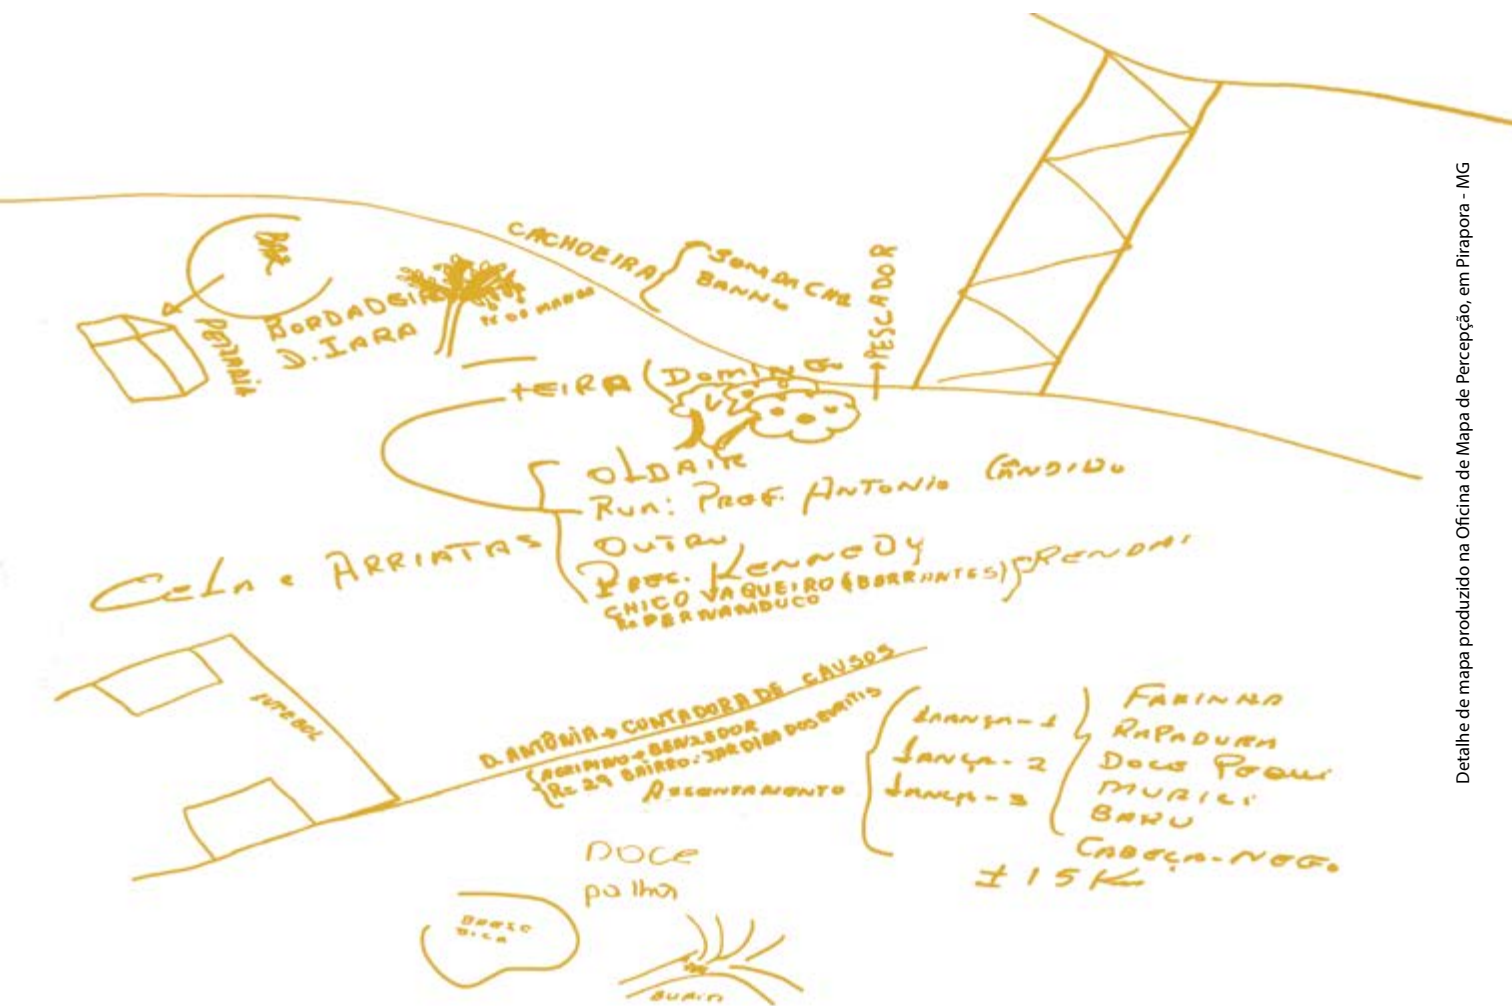 CACHOEIRA
BAR
BORDADEIRA
D. IARA
PÉ DE MANGA
PEIXARIA
PESCADOR
FEIRA (DOMINGO
OLDAIR
RUA: PROF. ANTONIO CÂNDIDO
OUTRO
PROF. KENNEDY
CHICO VAQUEIRO (BARRANTES)
RENDAI
R: PERNAMBUCO
CELA e ARRIATAS
FUTEBOL
D. ANTÔNIA → CONTADORA DE CAUSOS
AGRIPINO → BENZEDOR
R: 29 BAIRRO: JARDIM DOS BURITIS
ASSENTAMENTO
- 1
- 2
- 3
FARINHA
RAPADURA
DOCE PEQUI
MURICI
BARU
CABEÇA-NEG.
± 15 Km
DOCE
palha
BURITI
Detalhe de mapa produzido na Oficina de Mapa de Percepção, em Pirapora - MG